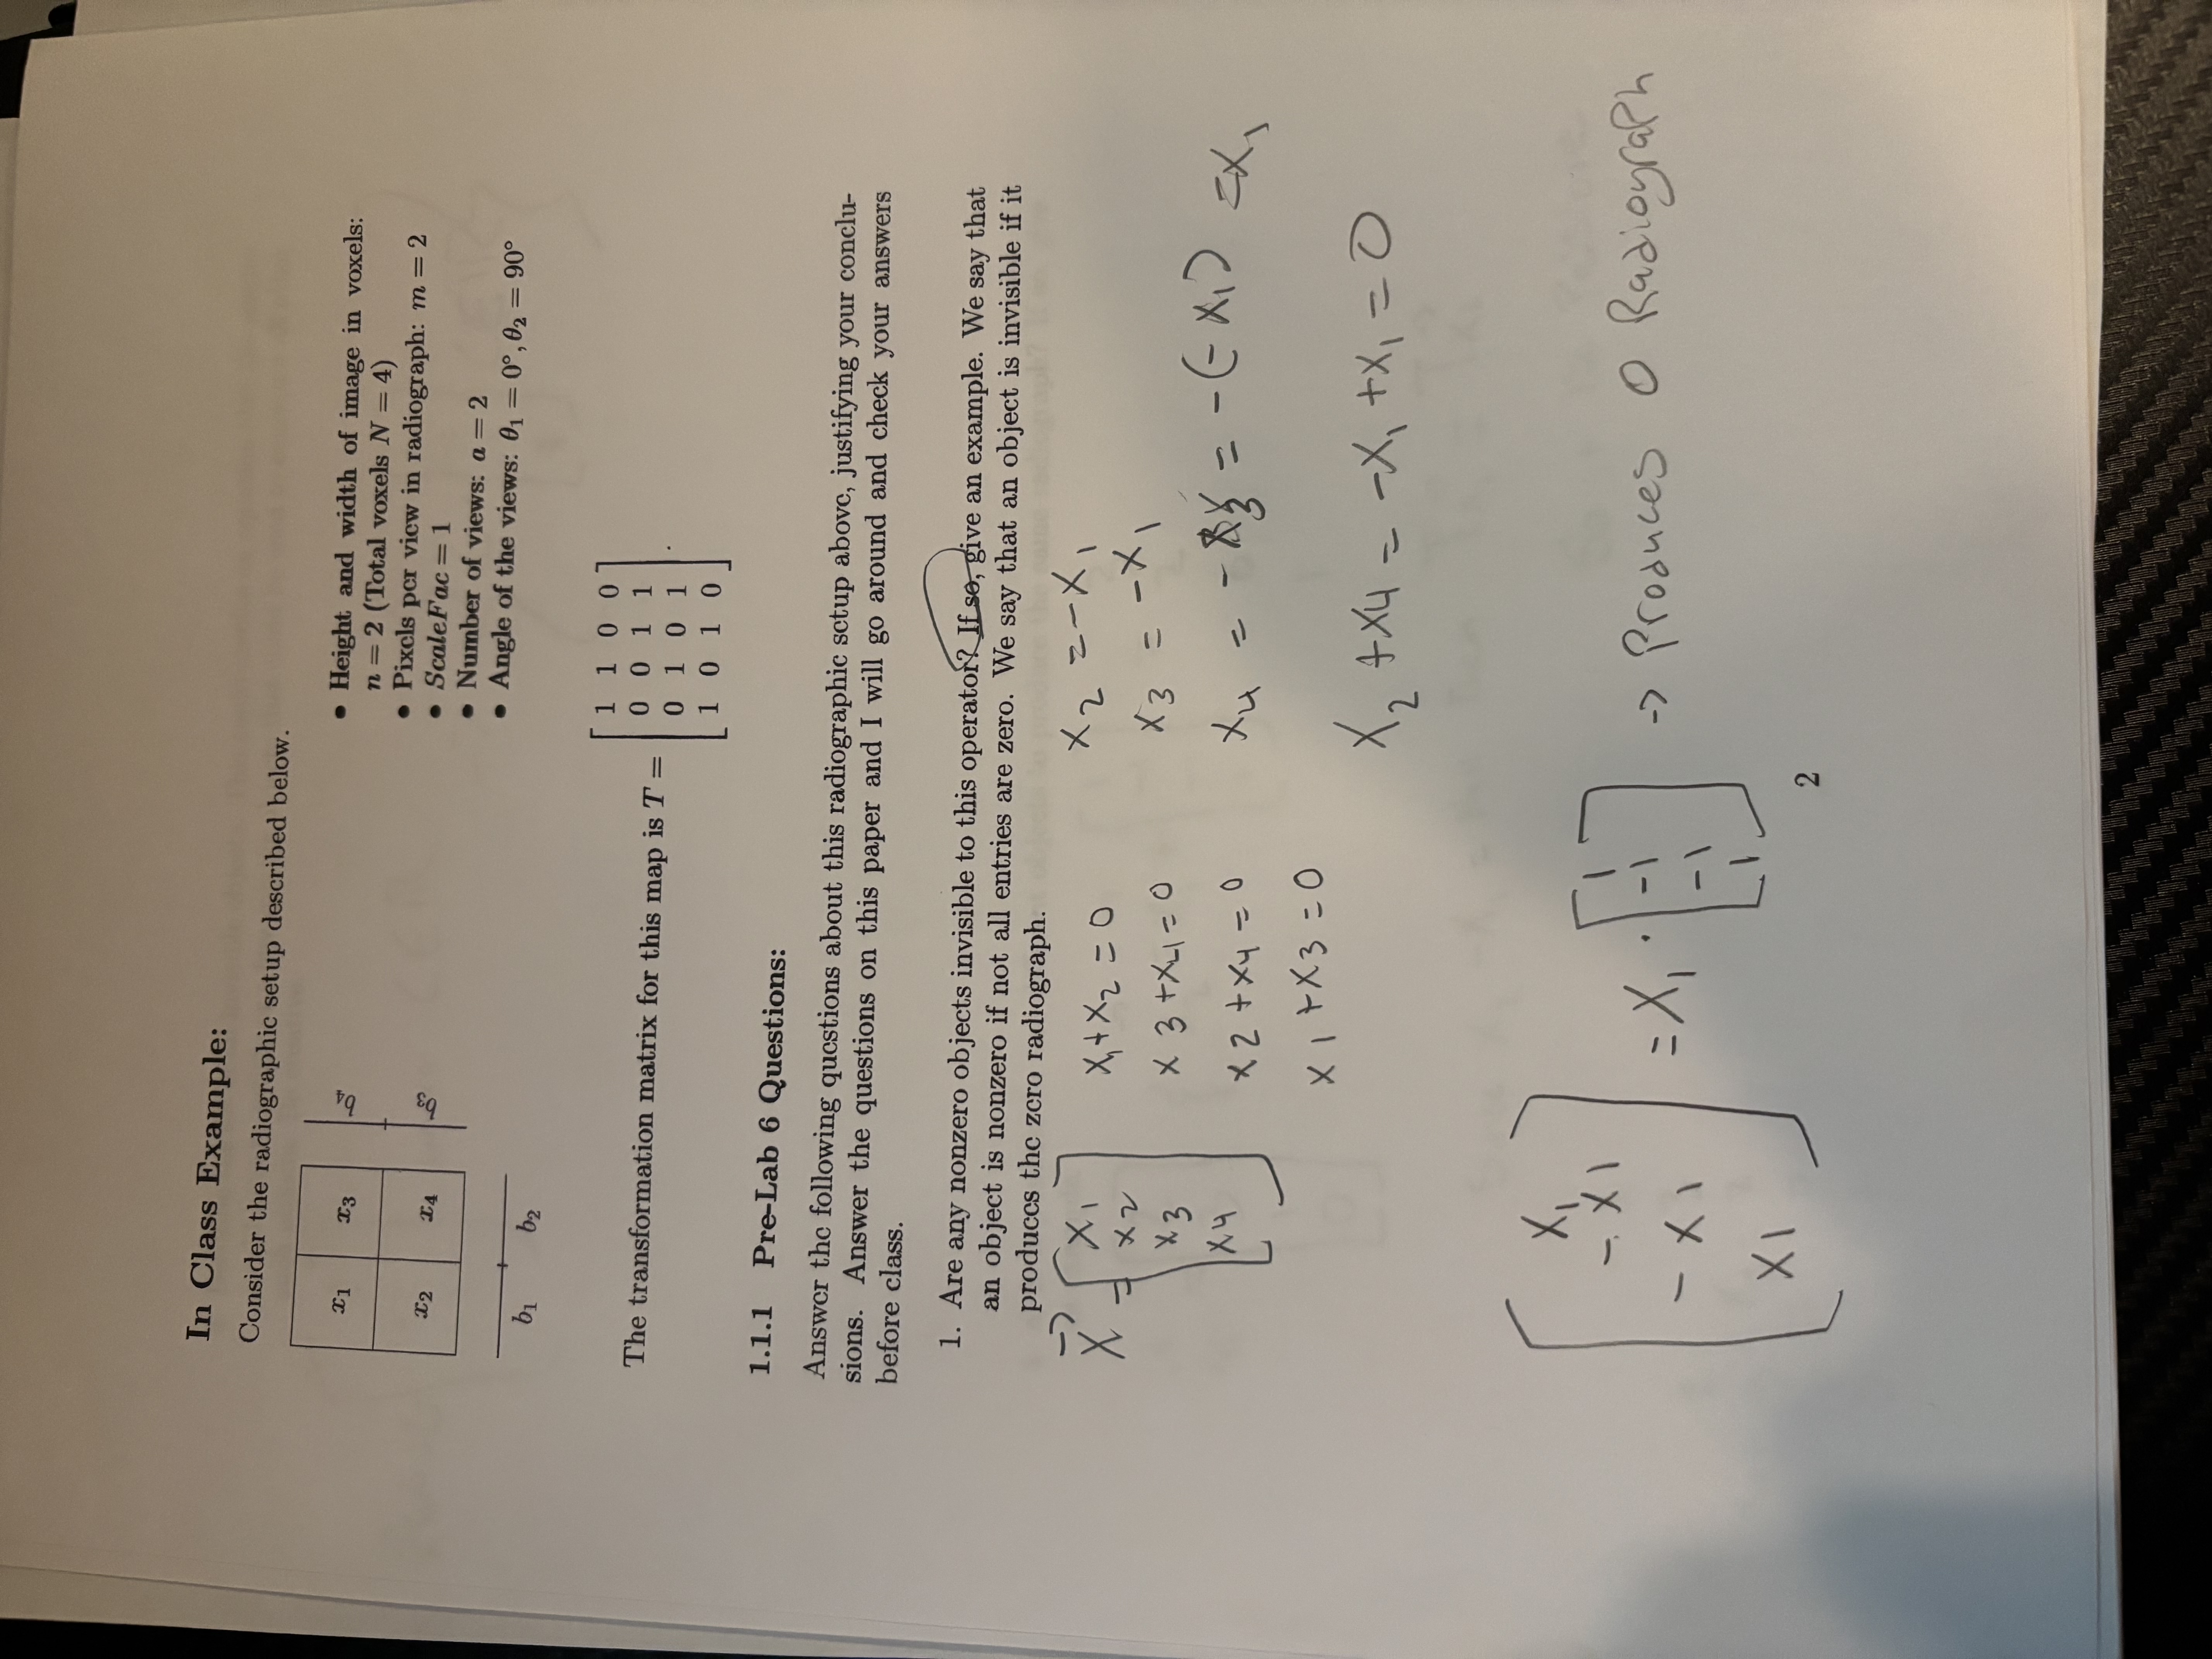 In Class Example:
Consider the radiographic setup described below.
x1 x3
x2 x4
b4
b3
b1 b2
• Height and width of image in voxels:
n = 2 (Total voxels N = 4)
• Pixels per view in radiograph: m = 2
• ScaleFac = 1
• Number of views: a = 2
• Angle of the views: θ1 = 0°, θ2 = 90°
The transformation matrix for this map is T =
1 1 0 0
0 0 1 1
0 1 0 1
1 0 1 0
.
1.1.1 Pre-Lab 6 Questions:
Answer the following questions about this radiographic setup above, justifying your conclu-
sions. Answer the questions on this paper and I will go around and check your answers
before class.
1. Are any nonzero objects invisible to this operator? If so, give an example. We say that
an object is nonzero if not all entries are zero. We say that an object is invisible if it
produces the zero radiograph.
X =
x1
x2
x3
x4
x1 + x2 = 0
x3 + x4 = 0
x2 + x4 = 0
x1 + x3 = 0
x2 = -x1
x3 = -x1
x4 = -x3 = -(-x1) = x1
x2 + x4 = -x1 + x1 = 0
x1
-x1
-x1
x1
= x1 ·
1
-1
-1
1
-> Produces 0 Radiograph
2